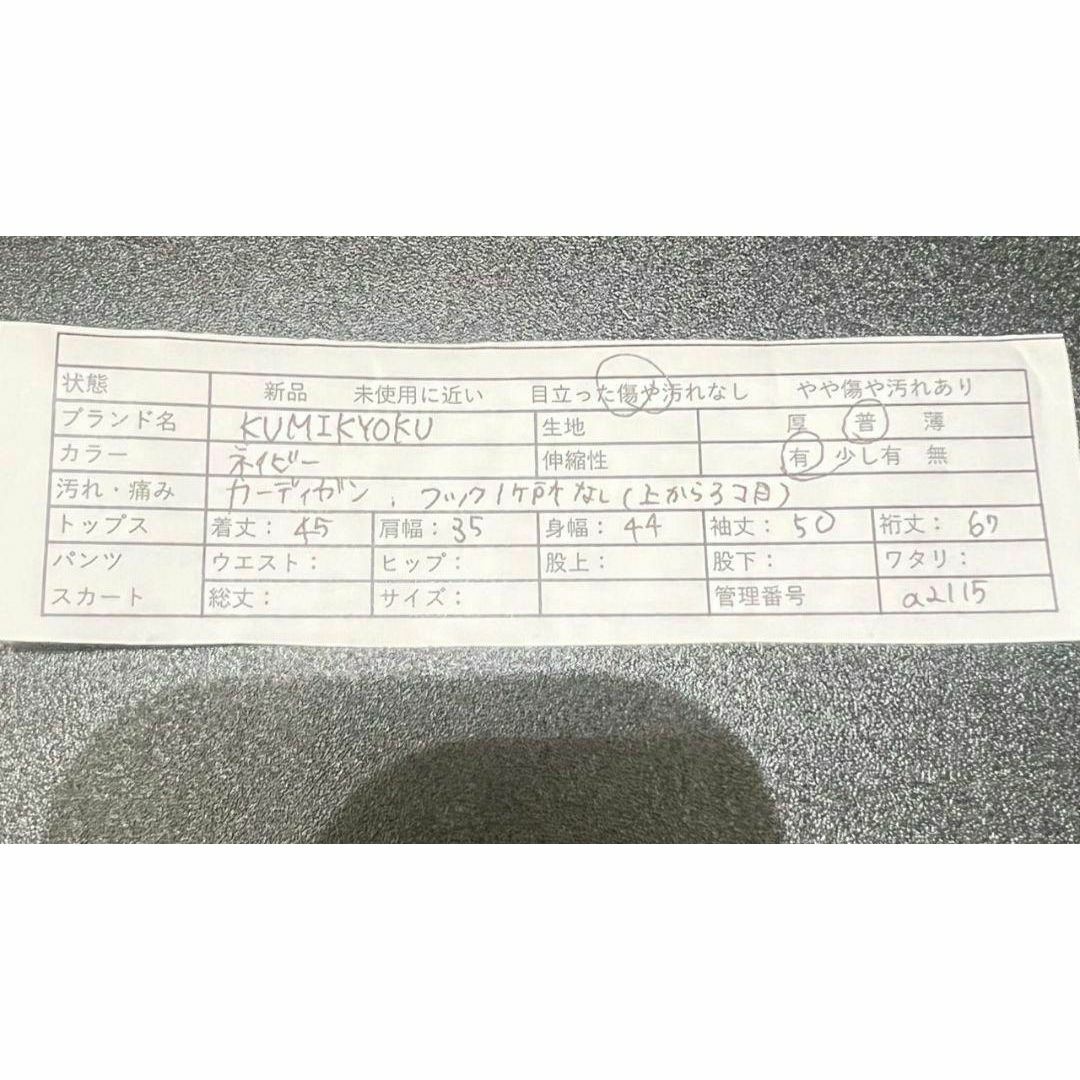 状態 新品 未使用に近い 目立った傷や汚れなし やや傷や汚れあり
ブランド名 KUMIKYOKU 生地 厚 普 薄
カラー ネイビー 伸縮性 有 少し有 無
汚れ・痛み カーディガン、フック1ヶ所なし(上から3コ目)
トップス 着丈：45 肩幅：35 身幅：44 袖丈：50 裄丈：67
パンツ ウエスト： ヒップ： 股上： 股下： ワタリ：
スカート 総丈： サイズ： 管理番号 a2115